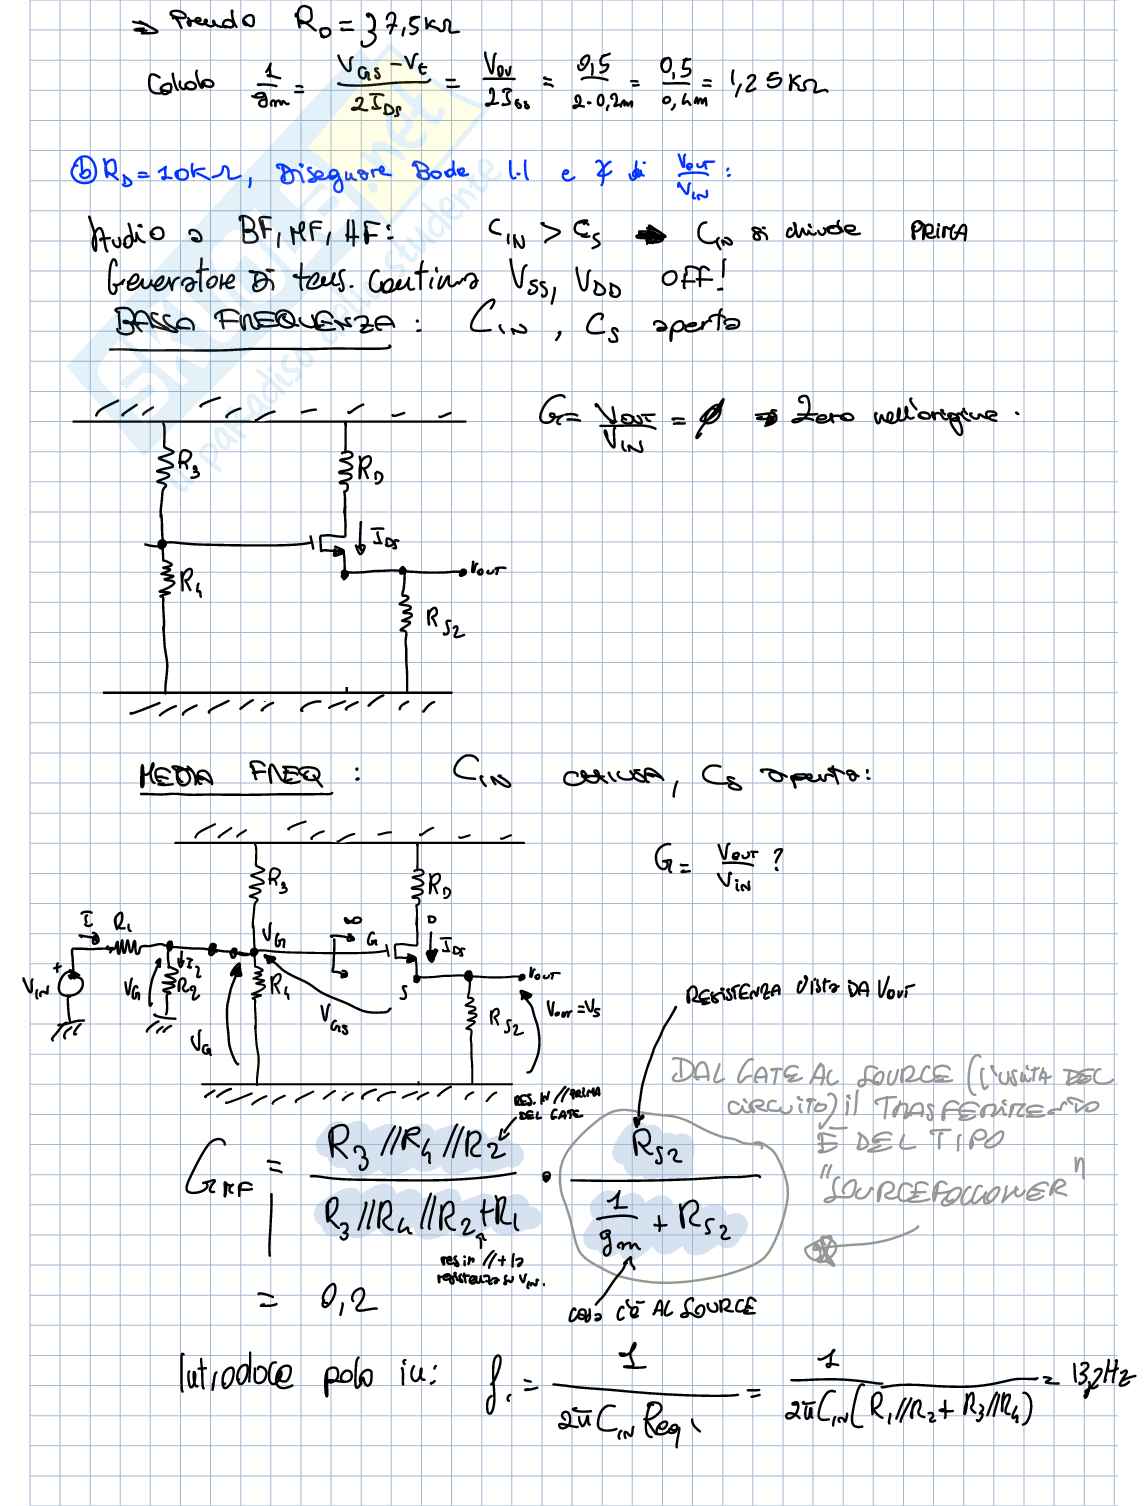 ⇒ Prendo R_D = 37,5KΩ
Calcolo 1/gm = (V_GS - V_t)/(2I_DS) = V_OV/(2I_DS) = 0,5/(2·0,2m) = 0,5/0,4m = 1,25KΩ
ⓑ R_D = 10KΩ, Disegnare Bode |.| e ∡ di V_OUT/V_IN :
Studio a BF, MF, HF: C_IN > C_S → C_IN si chiude PRIMA
Generatore Di tens. continua V_SS, V_DD OFF!
BASSA FREQUENZA: C_IN, C_S aperto
G = V_OUT/V_IN = ∅ ⇒ Zero nell'origine.
R_3
R_D
I_DS
V_OUT
R_4
R_S2
MEDIA FREQ: C_IN CHIUSA, C_S aperto:
G = V_OUT/V_IN ?
R_3
R_D
I
R_1
V_G
∞
G
D
I_DS
V_IN
+
V_G
I_2
R_2
R_4
S
V_OUT
V_GS
V_G
R_S2
V_OUT = V_S
RESISTENZA VISTA DA VOUT
DAL GATE AL SOURCE (L'USCITA DEL
CIRCUITO) il TRASFERIMENTO
È DEL TIPO
"SOURCE FOLLOWER"
RES. IN // PRIMA
DEL GATE
G_MF = (R_3//R_4//R_2)/(R_3//R_4//R_2+R_1) · R_S2/(1/gm + R_S2)
res in // + la
resistenza su V_IN.
COSA C'È AL SOURCE
= 0,2
Introduce polo in: f_1 = 1/(2πC_IN Req_1) = 1/(2πC_IN(R_1//R_2 + R_3//R_4)) = 13,2Hz